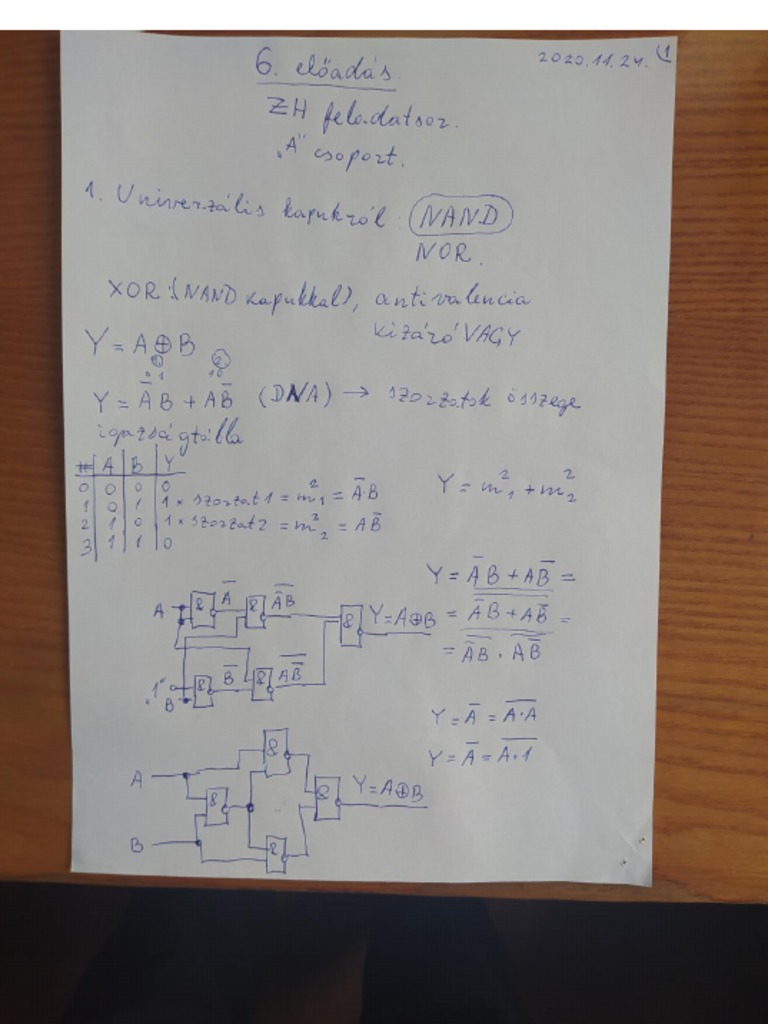 2020.11.24. 1
6. előadás
ZH feladatsor.
„A" csoport.
1. Univerzális kapukról: NAND
NOR.
XOR: (NAND kapukkal), antivalencia
kizáró VAGY
Y = A ⊕ B
01 10
Y = A̅B + AB̅ (DNA) → szorzatok összege
igazságtábla
# A B Y
0 0 0 0
1 0 1 1 * szorzat1 = m²₁ = A̅·B
2 1 0 1 * szorzat2 = m²₂ = AB̅
3 1 1 0
Y = m²₁ + m²₂
Y = A̅B + AB̅ =
= \overline{\overline{A̅B + AB̅}} =
= \overline{\overline{A̅B} · \overline{AB̅}}
A & A̅ & \overline{A̅B} & Y=A⊕B
„1" B & B̅ & \overline{AB̅}
Y = A̅ = \overline{A·A}
Y = A̅ = \overline{A·1}
&
A & & Y=A⊕B
B &